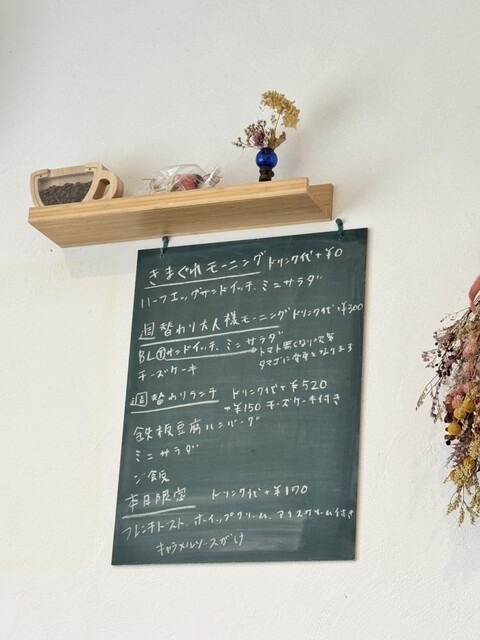 きまぐれモーニング ドリンク代+¥0
ハーフエッグサンドイッチ、ミニサラダ
週替わり大人様モーニング ドリンク代+¥300
BLⓉサンドイッチ、ミニサラダ
→トマト無くなり次第
タマゴに変更となります
チーズケーキ
週替わりランチ ドリンク代+¥520
+¥150 チーズケーキ付き
鉄板豆腐ハンバーグ
ミニサラダ
ご飯
本日限定 ドリンク代+¥170
フレンチトースト、ホイップクリーム、アイスクリーム付き
キャラメルソースがけ